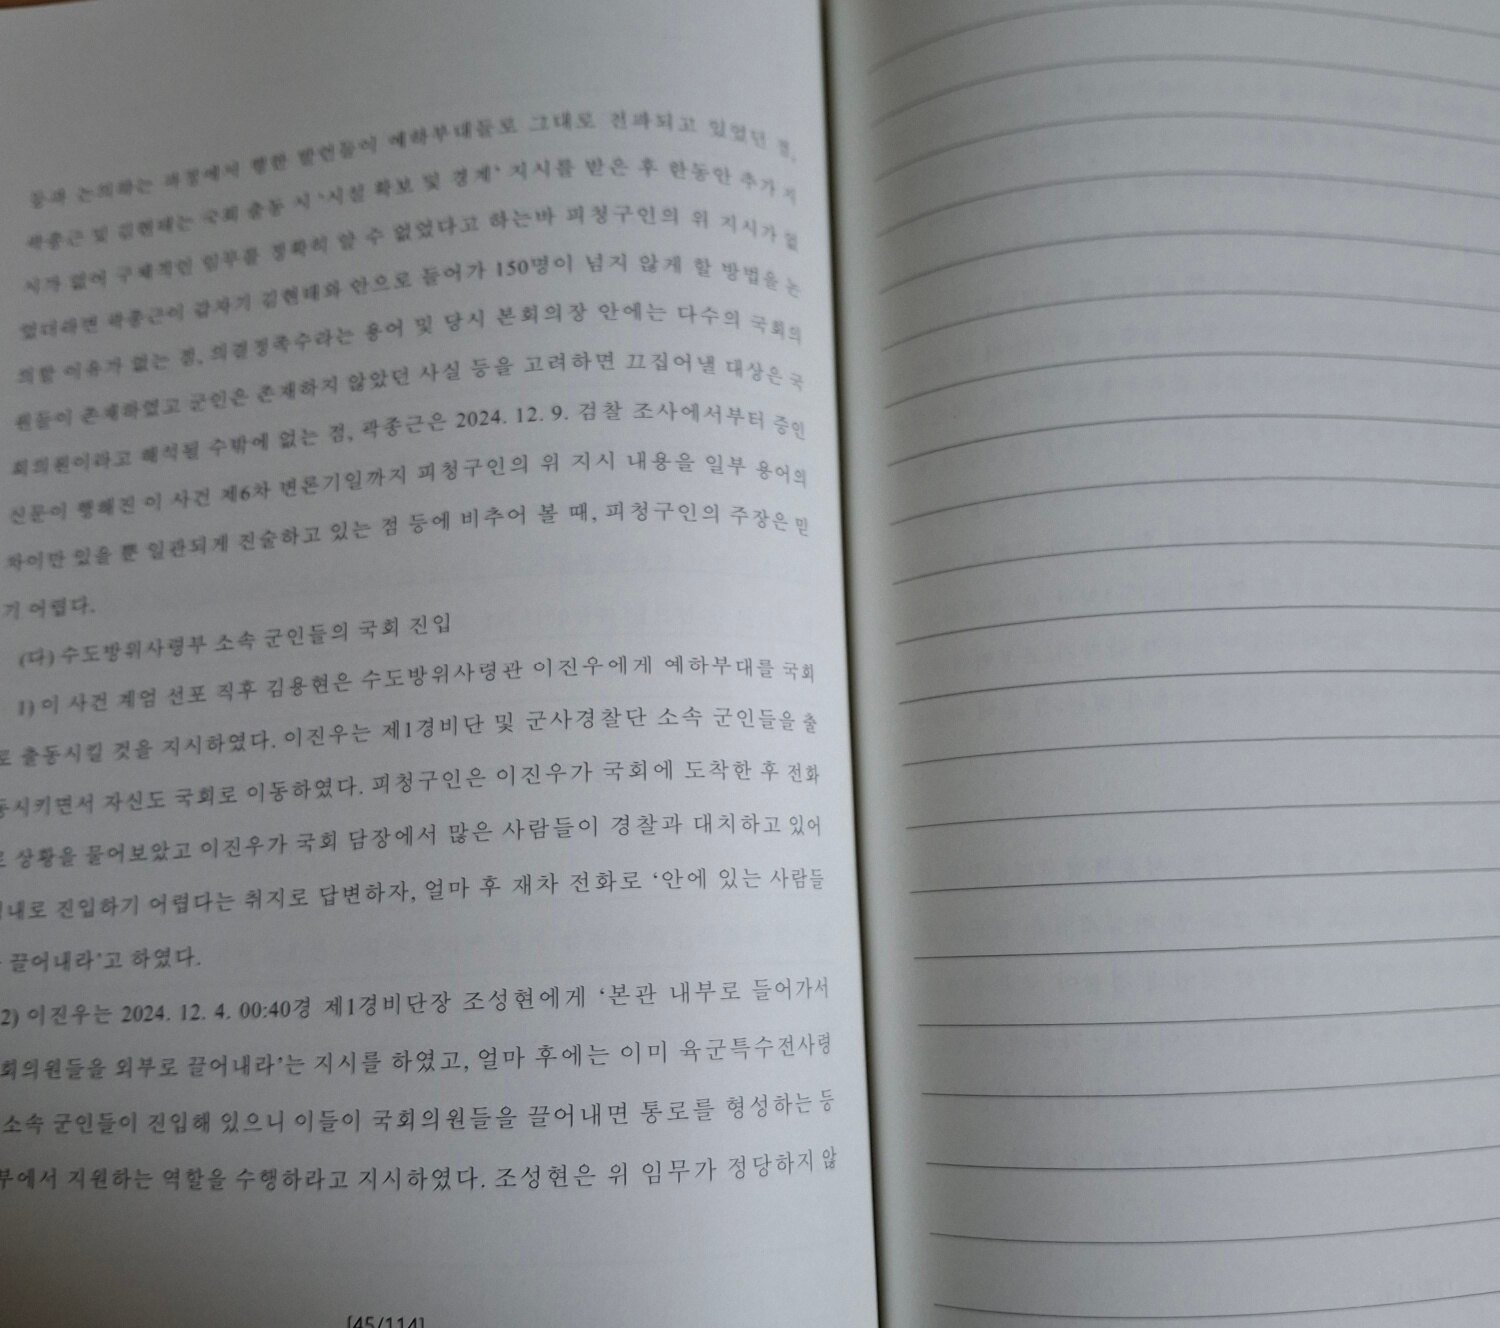 등과 논의하는 과정에서 행한 발언들이 예하부대들로 그대로 전파되고 있었던 점,
곽종근 및 김현태는 국회 출동 시 ‘시설 확보 및 경계’ 지시를 받은 후 한동안 추가 지
시가 없어 구체적인 임무를 정확히 알 수 없었다고 하는바 피청구인의 위 지시가 없
었더라면 곽종근이 갑자기 김현태와 안으로 들어가 150명이 넘지 않게 할 방법을 논
의할 이유가 없는 점, 의결정족수라는 용어 및 당시 본회의장 안에는 다수의 국회의
원들이 존재하였고 군인은 존재하지 않았던 사실 등을 고려하면 끄집어낼 대상은 국
회의원이라고 해석될 수밖에 없는 점, 곽종근은 2024. 12. 9. 검찰 조사에서부터 증인
신문이 행해진 이 사건 제6차 변론기일까지 피청구인의 위 지시 내용을 일부 용어의
차이만 있을 뿐 일관되게 진술하고 있는 점 등에 비추어 볼 때, 피청구인의 주장은 믿
기 어렵다.
(다) 수도방위사령부 소속 군인들의 국회 진입
1) 이 사건 계엄 선포 직후 김용현은 수도방위사령관 이진우에게 예하부대를 국회
로 출동시킬 것을 지시하였다. 이진우는 제1경비단 및 군사경찰단 소속 군인들을 출
동시키면서 자신도 국회로 이동하였다. 피청구인은 이진우가 국회에 도착한 후 전화
로 상황을 물어보았고 이진우가 국회 담장에서 많은 사람들이 경찰과 대치하고 있어
내로 진입하기 어렵다는 취지로 답변하자, 얼마 후 재차 전화로 ‘안에 있는 사람들
끌어내라’고 하였다.
2) 이진우는 2024. 12. 4. 00:40경 제1경비단장 조성현에게 ‘본관 내부로 들어가서
회의원들을 외부로 끌어내라’는 지시를 하였고, 얼마 후에는 이미 육군특수전사령
소속 군인들이 진입해 있으니 이들이 국회의원들을 끌어내면 통로를 형성하는 등
부에서 지원하는 역할을 수행하라고 지시하였다. 조성현은 위 임무가 정당하지 않
[45/114]